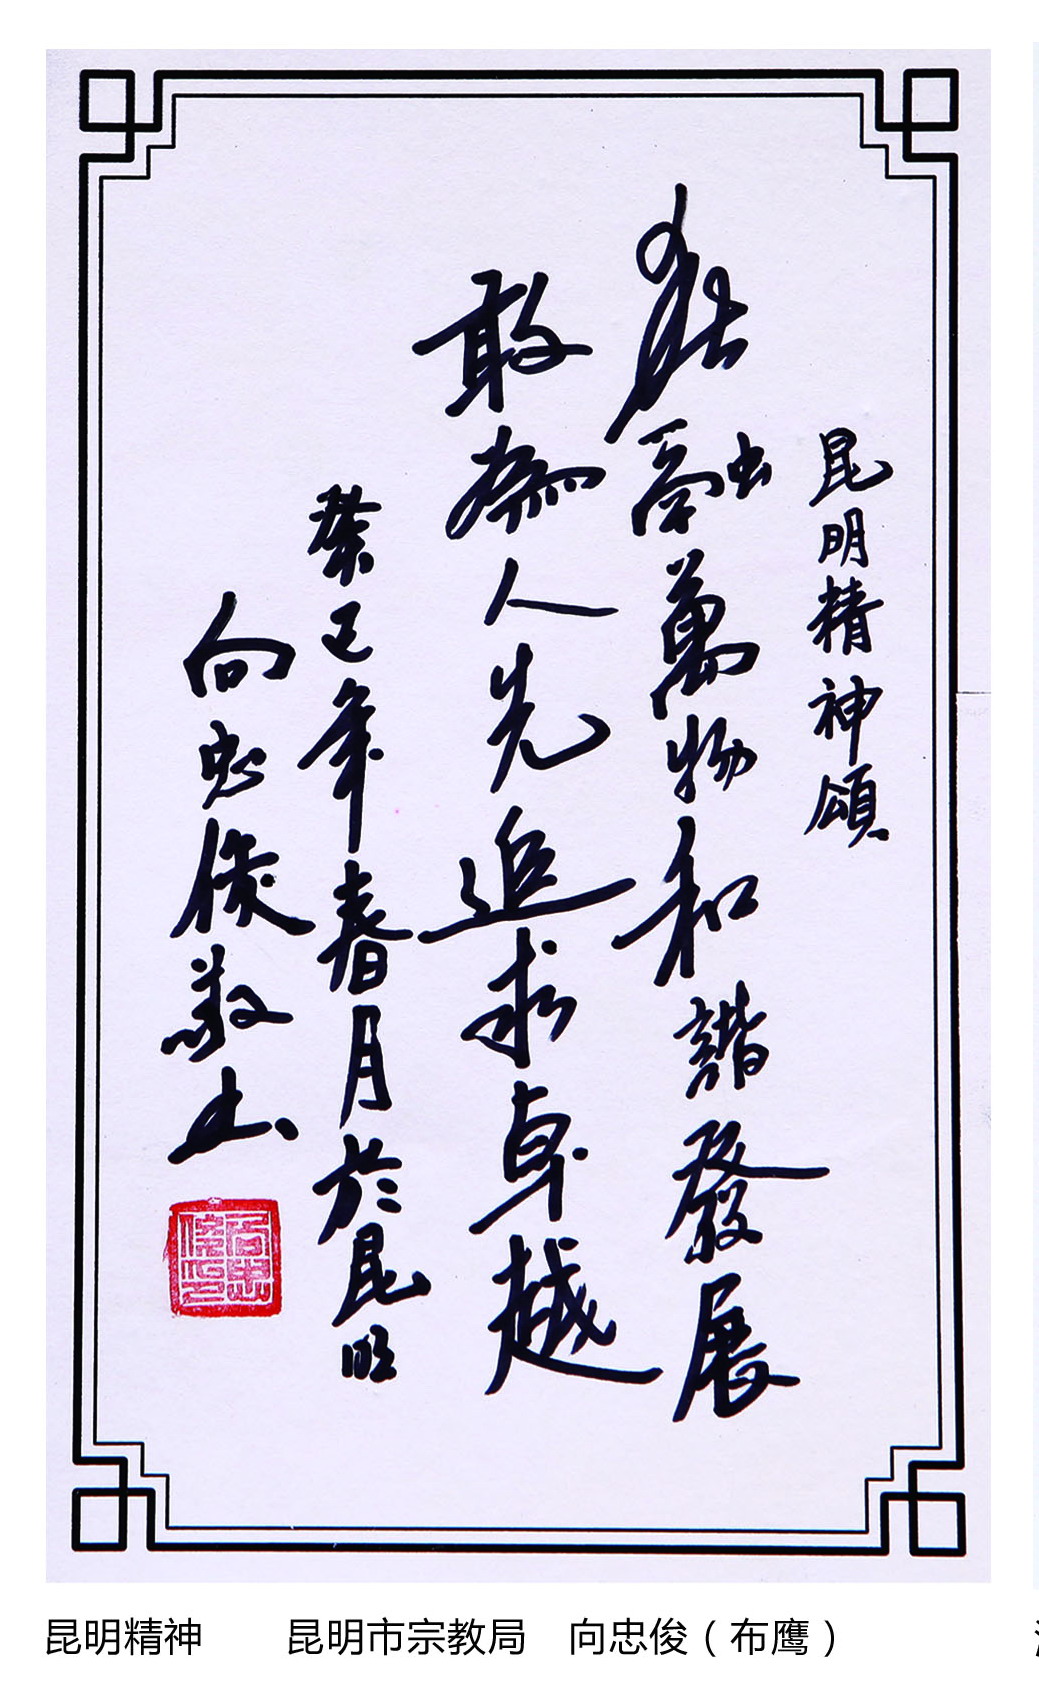 昆明精神頌
融萬物和諧發展
敢為人先追求卓越
癸巳年春月於昆明
向忠俊敬書
昆明精神 昆明市宗教局 向忠俊（布鹰）